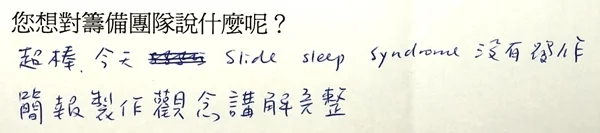 您想對籌備團隊說什麼呢？
超棒，今天 slide sleep syndrome 沒有發作
簡報製作觀念講解完整